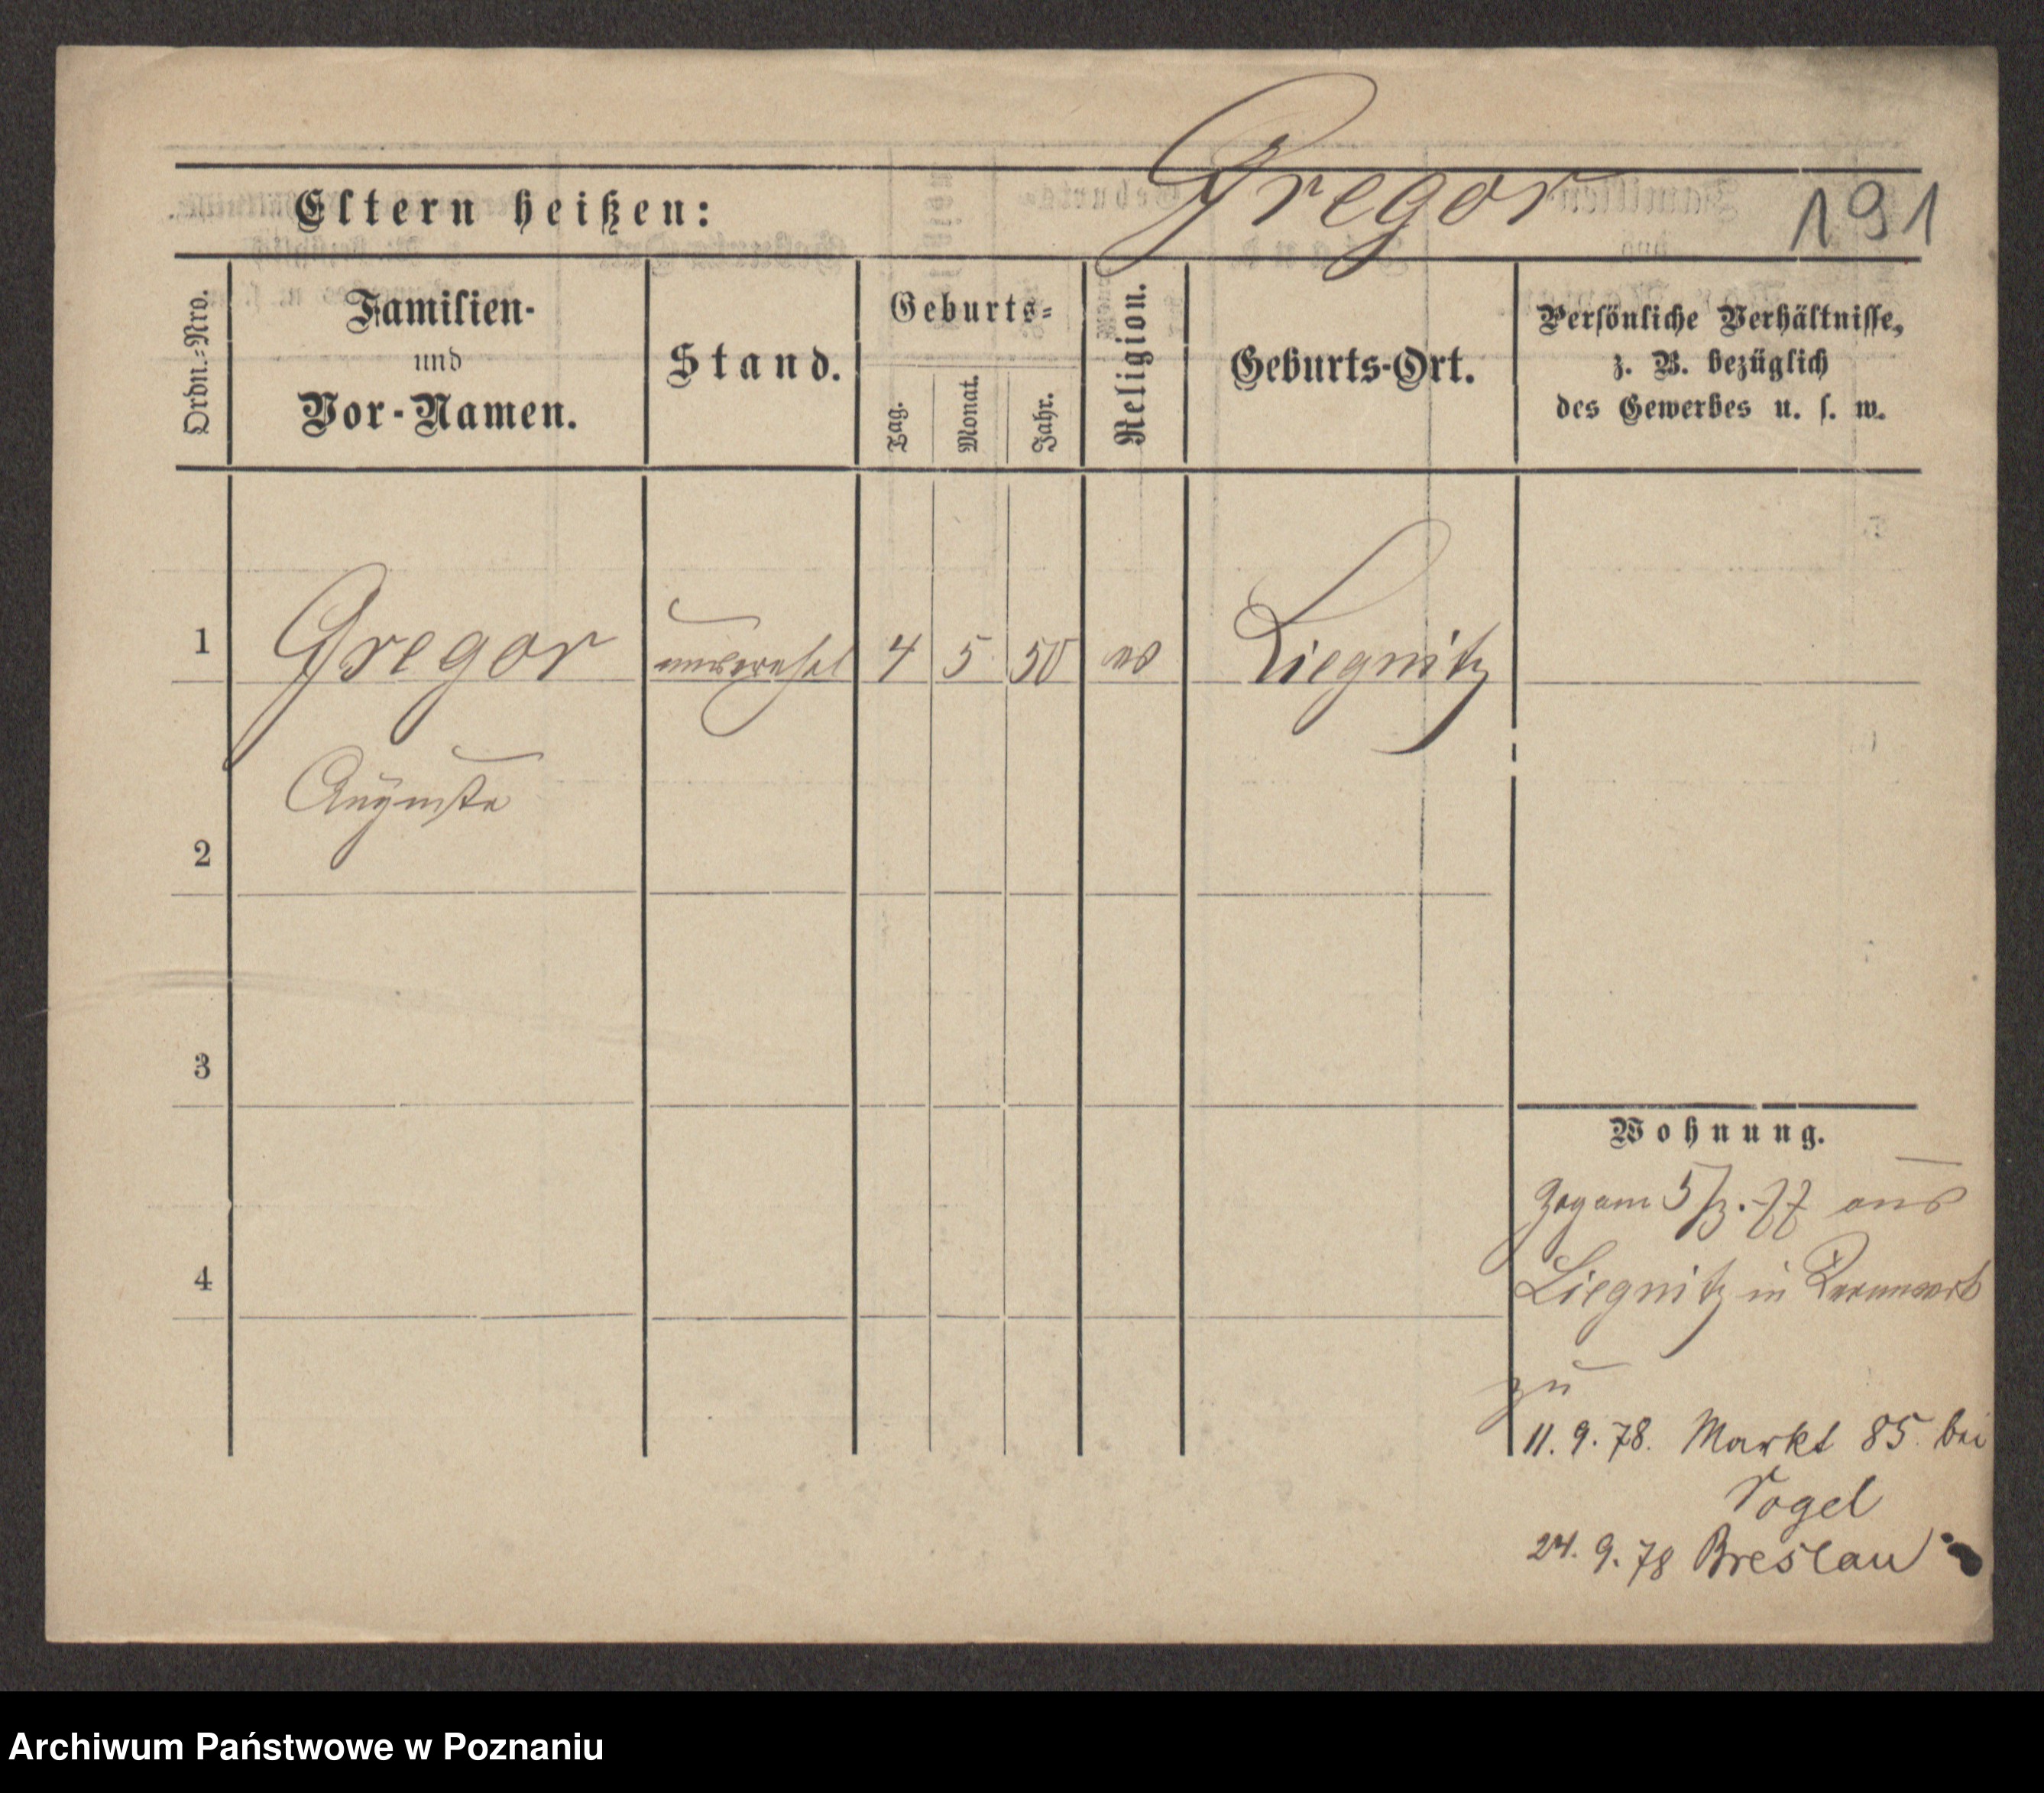 Gregor
Eltern heißen:
191
Ordn.-Nro.
Familien-
und
Vor-Namen.
Stand.
Geburts-
Tag.
Monat.
Jahr.
Religion.
Geburts-Ort.
Persönliche Verhältnisse,
z. B. bezüglich
des Gewerbes u. s. w.
1 Gregor 4 5 50 Liegnitz
Auguste
2
3
4
Wohnung.
Zog am 5/3. 77 aus
Liegnitz in
zu
11. 9. 78. Markt 85 bei
Vogel
24. 9. 78 Breslau
Archiwum Państwowe w Poznaniu